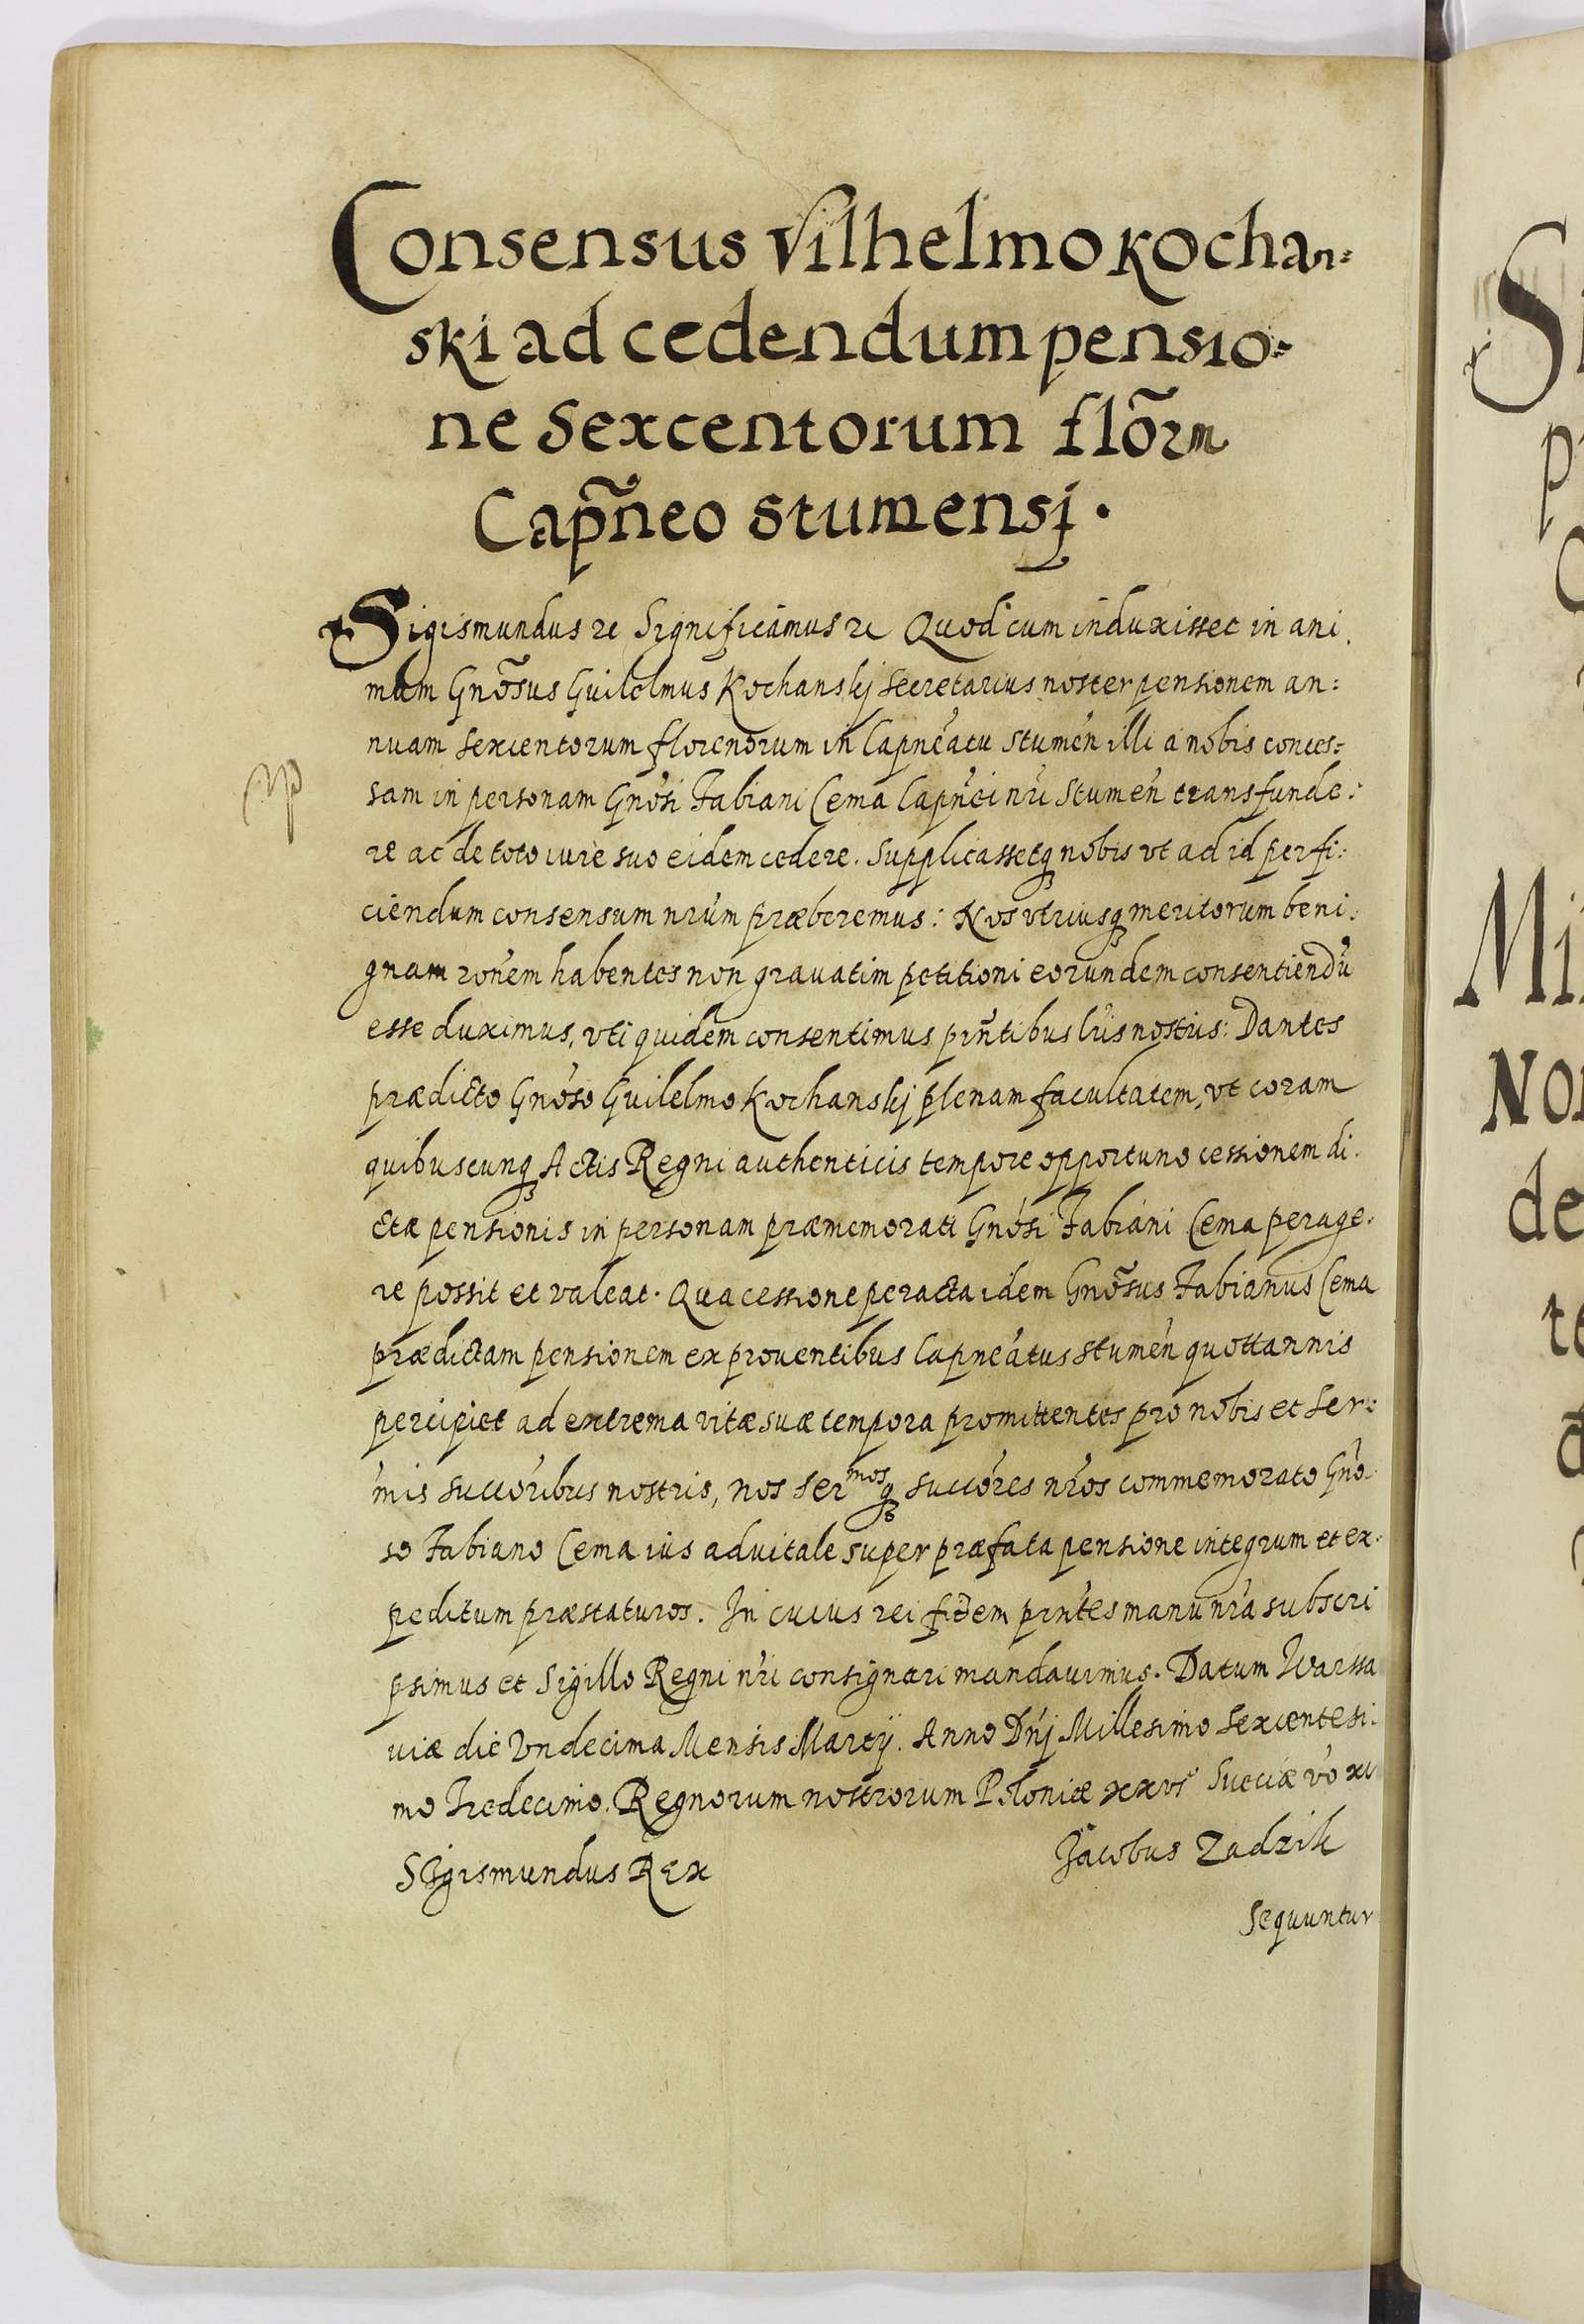 Consensus Vilhelmo Kochan=
ski ad cedendum pensio=
ne sexcentorum flõrm
Capñeo stumensj.
Sigismundus rc Significamus rc Quod cum induxisset in ani.
mum Gnõsus Guilelmus Kochanskj secretarius noster pensionem an=
nuam sexcentorum florenorum in Capneátu stumén illi a nobis conces=
sam in personam Gnósi Fabiani Cema Capñei nri Stumén transfunde:
re ac de toto iure suo eidem cedere. Supplicassetq nobis vt ad id perfi:
ciendum consensum nrúm præberemus: Nos vtriusq meritorum beni.
gnam ronem habentes non grauatim petitioni eorundem consentiendũ
esse duximus, vti quidem consentimus prñtibus lris nostris: Dantes
prædicto Gnóso Guilelmo Kochanskj plenam facultatem, vt coram
quibuscunq Actis Regni authenticis tempore opportuno cessionem di.
ctæ pensionis in personam præmemorati Gnósi Fabiani Cema perage.
re possit et valeat. Qua cessione peracta idem Gnõsus Fabianus Cema
prædictam pensionem ex prouentibus Capneátus stumén quottannis
percipiet ad extrema vitæ suæ tempora promittentes pro nobis et Ser=
mis succoribus nostris, nos sermosq succóres nros commemorato Gno
so Fabiano Cema ius aduitale super præfata pensione integrum et ex.
peditum præstaturos. In cuius rei fidem prntes manu nrá subscri
psimus et Sigillo Regni nri consignari mandauimus. Datum Warssa
uiæ die Vndecima Mensis Martij. Anno Dnj Millesimo Sexcentesi.
mo Tredecimo. Regnorum nostrorum Poloniæ xxvi Sueciæ vo xi
Sigismundus Rex
Jacobus Zadzik
Sequuntur
Mi
Nor
de